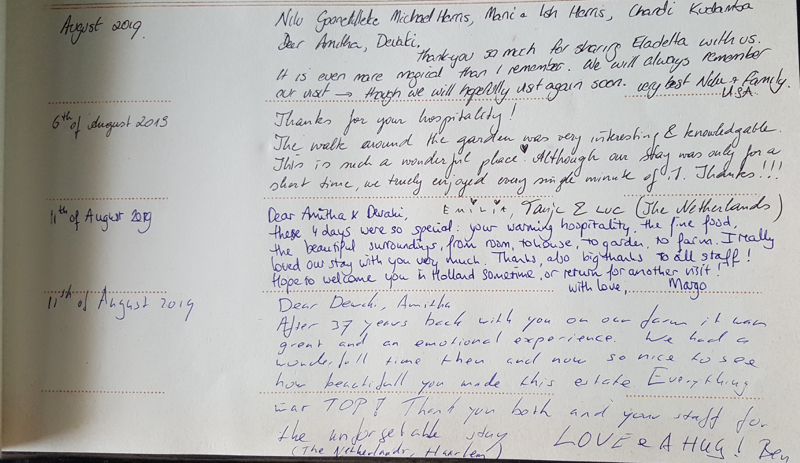 August 2019.
Nilu Michael Harris, Mani & Ish Harris, Chandi
Dear Amitha, Devaki,
Thank you so much for sharing Eladetta with us.
It is even more magical than I remember. We will always remember
our visit → though we will hopefully visit again soon. very best Nilu & Family.
USA.
6th of August 2019
Thanks for your hospitality!
The walk around the garden was very interesting & knowledgable.
This is such a wonderful place! Although our stay was only for a
short time, we truely enjoyed every single minute of it. Thanks!!!
Emilia, Tanja & Luc (The Netherlands)
11th of August 2019
Dear Amitha & Devaki,
these 4 days were so special: your warming hospitality, the fine food,
the beautiful surroundings, from room, to house, to garden, to farm. I really
loved our stay with you very much. Thanks, also big thanks to all staff!
Hope to welcome you in Holland sometime, or return for another visit!
with love, Margo
11th of August 2019
Dear Devaki, Amitha
After 37 years back with you on our farm it was
great and an emotional experience. We had a
wonderfull time then and now so nice to see
how beautifull you made this estate Everything
was TOP! Thank you both and your staff for
the unforgetable stay
(The Netherlands, Haarlem) LOVE & A HUG! Ben